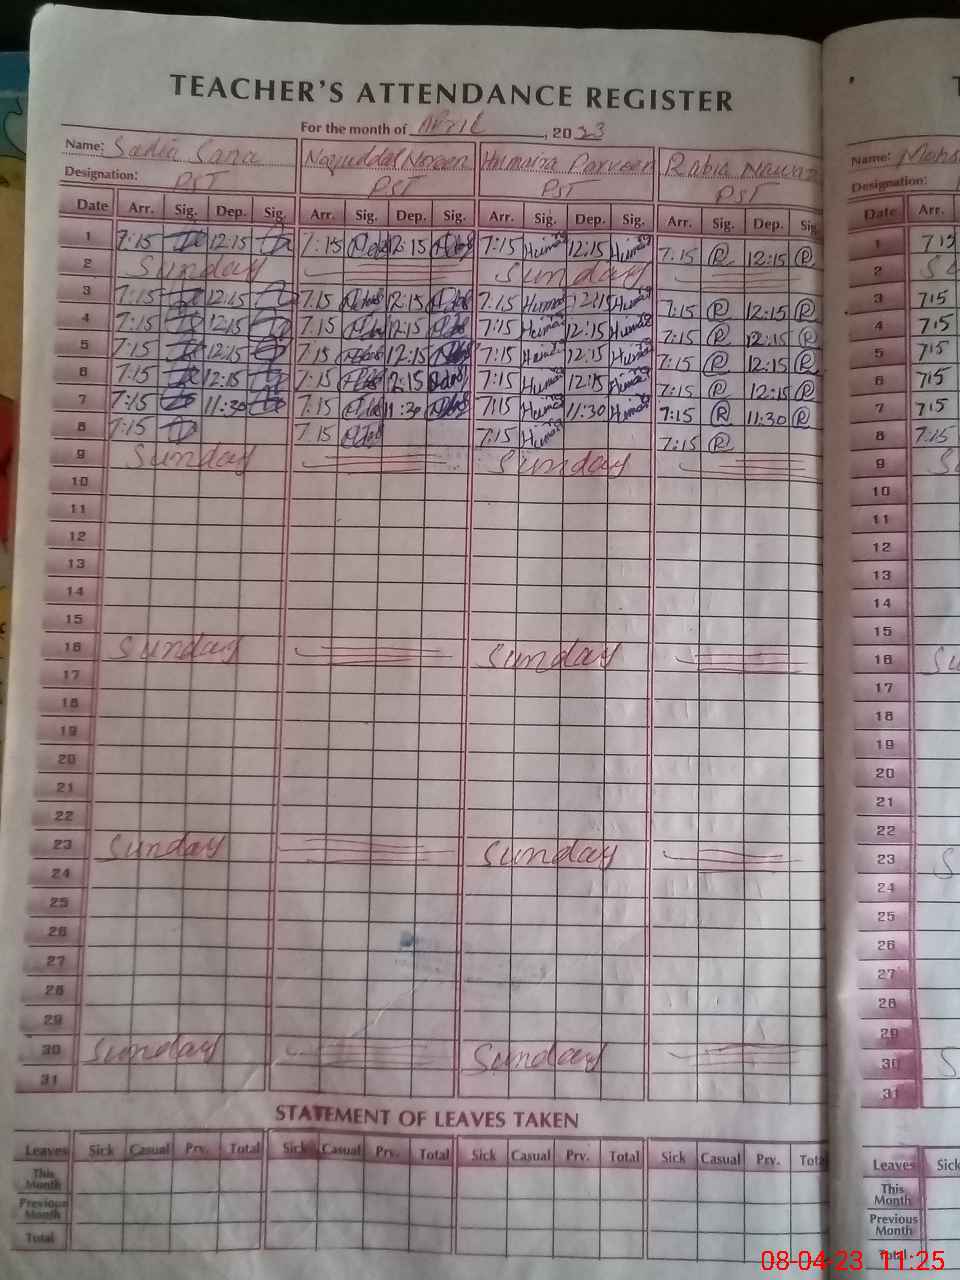 TEACHER'S ATTENDANCE REGISTER
For the month of April, 2023
Name: Sadia Sana Noreen Humaira Parveen Rabia Nawaz Name:
Designation: PST PST PST PST Designation:
Date Arr. Sig. Dep. Sig. Arr. Sig. Dep. Sig. Arr. Sig. Dep. Sig. Arr. Sig. Dep. Sig. Date Arr.
1 7:15 12:15 7:15 12:15 7:15 Huma 12:15 Huma 7:15 R 12:15 R 1 715
2 Sunday Sunday 2
3 7:15 12:15 7:15 12:15 7:15 Huma 12:15 Huma 7:15 R 12:15 R 3 715
4 7:15 12:15 7:15 12:15 7:15 Huma 12:15 Huma 7:15 R 12:15 R 4 715
5 7:15 12:15 7:15 12:15 7:15 Huma 12:15 Huma 7:15 R 12:15 R 5 715
6 7:15 12:15 7:15 12:15 7:15 Huma 12:15 Huma 7:15 R 12:15 R 6 715
7 7:15 11:30 7:15 11:30 7:15 Huma 11:30 Huma 7:15 R 11:30 R 7 715
8 7:15 7 15 7:15 Huma 7:15 R 8 7:15
9 Sunday Sunday 9
10 10
11 11
12 12
13 13
14 14
15 15
16 Sunday Sunday 16
17 17
18 18
19 19
20 20
21 21
22 22
23 Sunday Sunday 23
24 24
25 25
26 26
27 27
28 28
29 29
30 Sunday Sunday 30
31 31
STATEMENT OF LEAVES TAKEN
Leaves Sick Casual Prv. Total Sick Casual Prv. Total Sick Casual Prv. Total Sick Casual Prv. Total Leaves Sick
This Month This Month
Previous Month Previous Month
Total Total
08-04-23 11:25